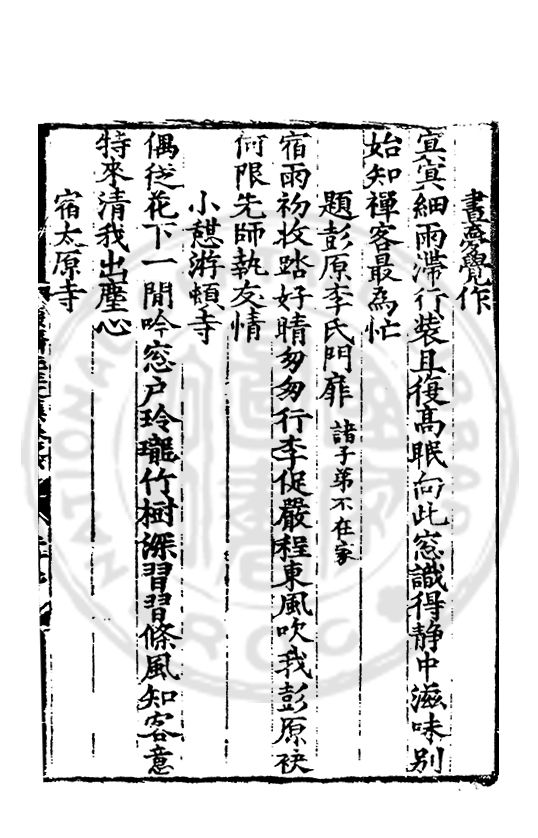 晝夢覺作
冥冥細雨滯行裝且復髙眠向此窓識得静中滋味别
始知禪客最為忙
題彭原李氏門扉 諸子弟不在家
宿雨初收踏好晴匆匆行李促嚴程東風吹我彭原袂
何限先師執友情
小憇游頓寺
偶從花下一閒吟窓戸玲瓏竹樹深習習條風知客意
特來清我出塵心
宿太原寺